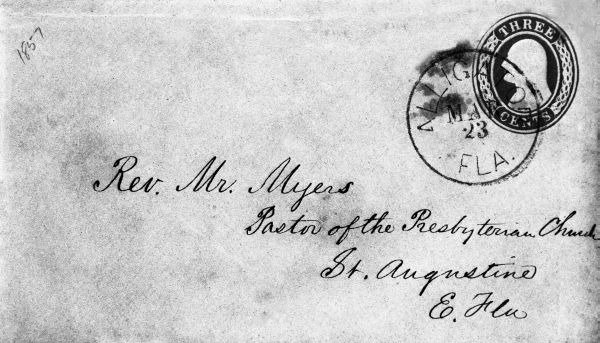 1857
THREE
CENTS
ALLIGATOR
MAR
23
FLA.
Rev. Mr. Myers
Pastor of the Presbyterian Church
St. Augustine
E. Fla